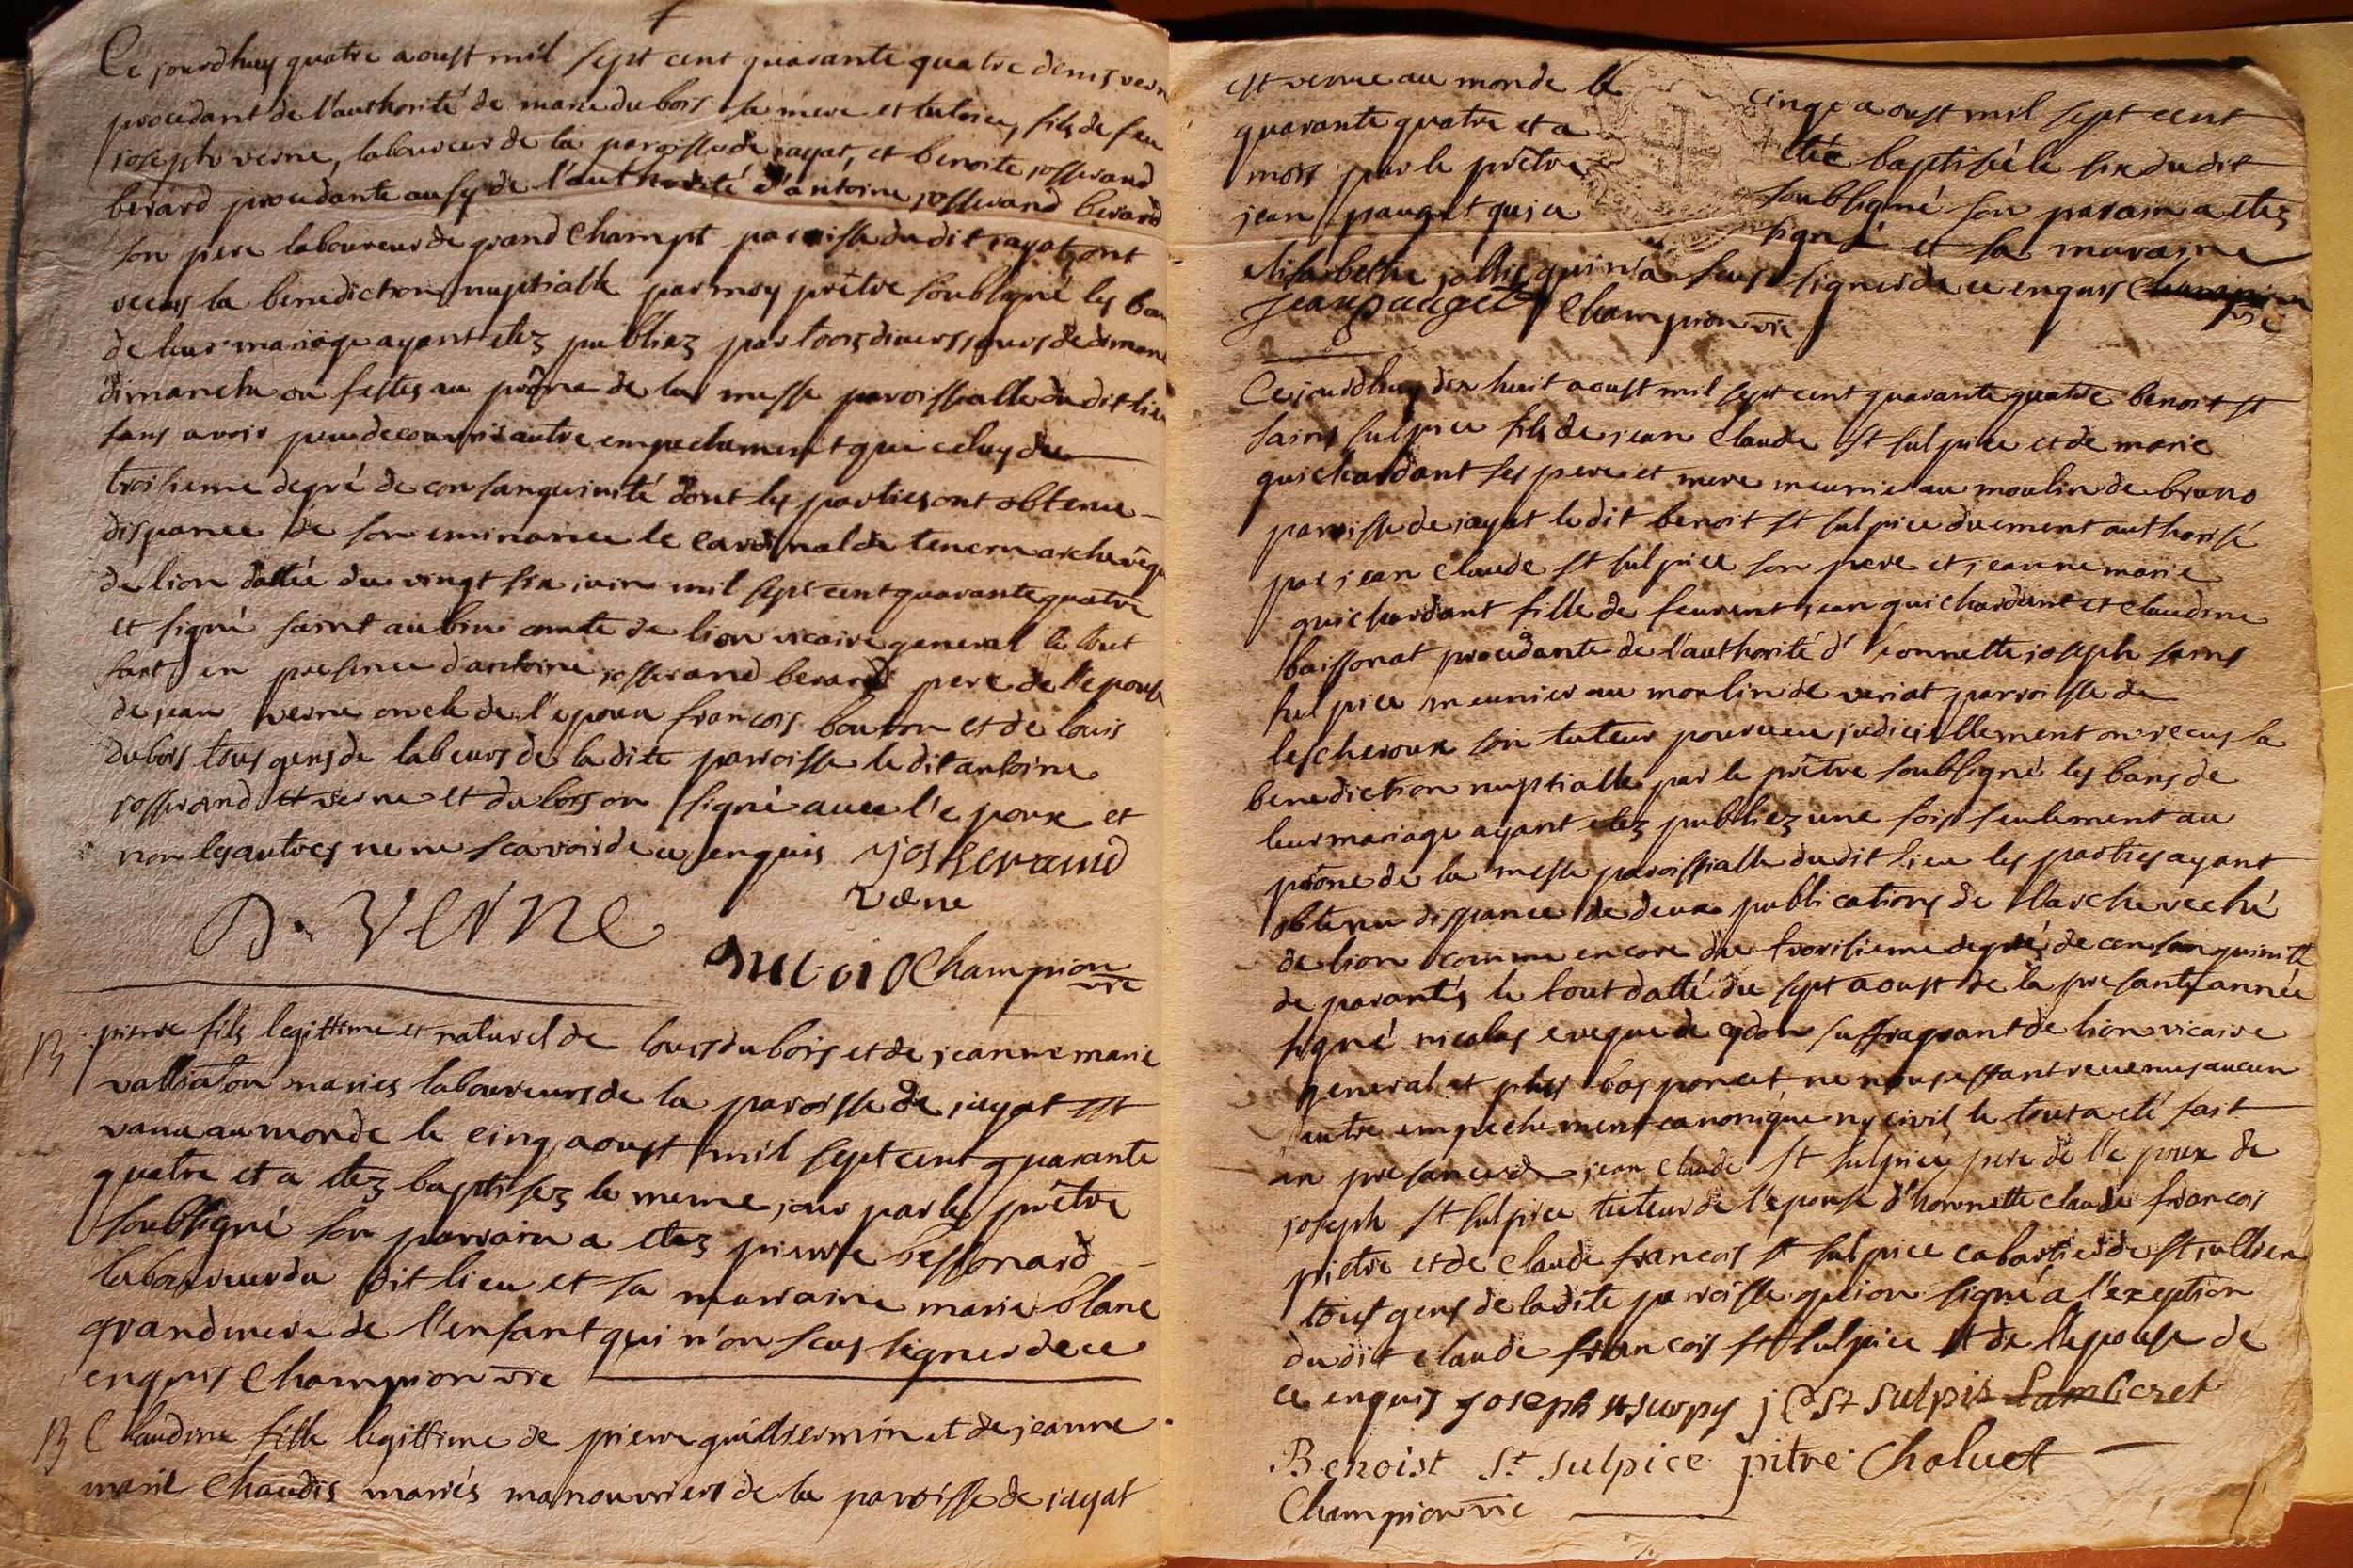 Ce jourdhuy quatre aoust mil sept cent quarante quatre denis vern
procedant de l'authorité de marie du bois sa mere et tutrice, fils de feu
joseph verne, laboureur de la paroisse de jayat, et benoite josserand
berard procedante aussy de l'authorité d'antoine josserand berard
son pere laboureur de grand Champt paroisse du dit jayat, ont
recus la benediction nuptialle par moy prêtre soubsigné les ban
de leur mariage ayant etez publiez par trois divers jours de diman
dimanche ou festes au prône de la messe paroissialle du dit lieu
sans avoir peu decouvrir autre empechement que celuy du
troisieme degré de consanguinité dont les parties ont obtenue
dispance de son eminance le Cardinal de tencin archevêqu
de lion dattée du vingt six juin mil sept cent quarante quatre
et signé saint aubin comte de lion vicaire general le tout
fait en presence d'antoine josserand berard pere de l'epouse
de jean verne oncle de l'epoux francois bouton et de louis
dubois tous gens de labeurs de la dite paroisse le dit antoine
josserand et verne et dubois on signé avec l'epoux et
non les autres ne scavoir de ce enquis josserand
verne
D. verne
duboid Champion vre
B pierre fils legittime et naturel de louis dubois et de jeanne marie
valliaton mariés laboureurs de la paroisse de jayat est
venu au monde le cinq aoust mil sept cent quarante
quatre et a etez baptisez le meme jour par le prêtre
soubsigné son parrain a etez pierre bessonard
laboureur du dit lieu et sa marraine marie blanc
grandmere de l'enfant qui n'on sceus signer de ce
enquis Champion vre
B Claudine fille legittime de pierre guilliermin et de jeanne
marie Chaudis mariés manouvriers de la paroisse de jayat
est venue au monde le cinqe aoust mil sept cent
quarante quatre et a etée baptisée le six du dit
mois par le prêtre soubsigné son parain a etez
jean pauget qui a signé et sa maraine
elisabethe jollie qui n'a sceus signer de ce enquis Champion vre
jean pauget Champion vre
Ce jourdhuy dix huit aoust mil sept cent quarante quatre benoit st
saint sulpice fils de jean Claude st sulpice et de marie
guichardant ses pere et mere meunier au moulin de brano
paroisse de jayat le dit benoit st sulpice duement authorisé
par jean claude st sulpice son pere et jeanne marie
guichardant fille de feurent jean guichardant et claudine
baissonat procedante de l'authorité d'honnette joseph saint
sulpice meunier au moulin de veriat parroisse de
lescheroux son tuteur pourveu judiciellement on recus la
benediction nuptialle par le prêtre soubsigné les bans de
leur mariage ayant etez publiez une fois seulement au
prône de la messe paroissialle du dit lieu les parties ayant
obtenu dispance de deux publications de l'archeveché
de lion comme encore du troisieme degré de consanguinité
de parantés le tout datté du sept aoust de la presante année
signé nicolas eveque de cydon suffragant de lion vicaire
general et plus bas poncet ne nous estant revenus aucun
autre empechement canonique ny civil, le tout a été fait
en presance de jean claude st sulpice pere de l'epoux de
joseph st sulpice tuteur de l'epouse d'honnette claude francois
pietre et de claude francois st sulpice cabartier de st jullien
tout gens de la dite paroisse qui on signé a l'exeption
du dit claude francois st sulpice et de l'epouse de
ce enquis joseph st surpy j C st sulpis Lambezet
Benoist St Sulpice pitre Choluet
Champion vre